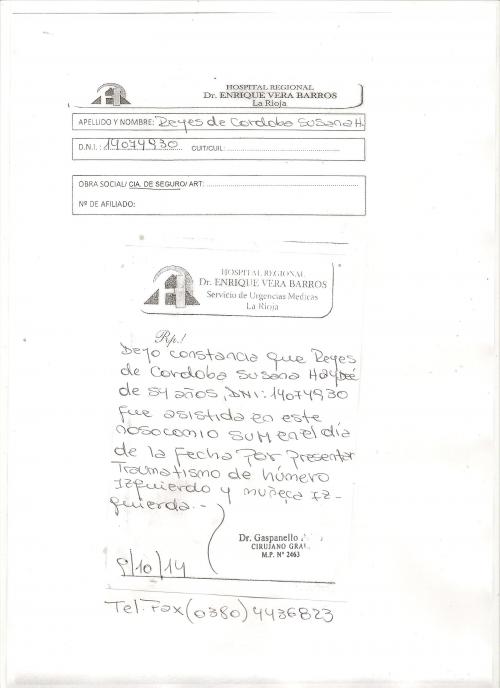 HOSPITAL REGIONAL
Dr. ENRIQUE VERA BARROS
La Rioja
APELLIDO Y NOMBRE: Reyes de Cordoba Susana H.
D.N.I.: 14074930 CUIT/CUIL:
OBRA SOCIAL/ CIA. DE SEGURO/ ART:
Nº DE AFILIADO:
HOSPITAL REGIONAL
Dr. ENRIQUE VERA BARROS
Servicio de Urgencias Medicas
La Rioja
Rp.!
Dejo constancia que Reyes
de Cordoba Susana Haydeé
de 54 años, DNI: 14074930
fue asistida en este
nosocomio SUM en el día
de la fecha por presentar
Traumatismo de húmero
Izquierdo y muñeca Iz-
quierda.-
Dr. Gaspanello
CIRUJANO GRAL.
M.P. Nº 2463
9/10/14
Tel-Fax (0380) 4436823